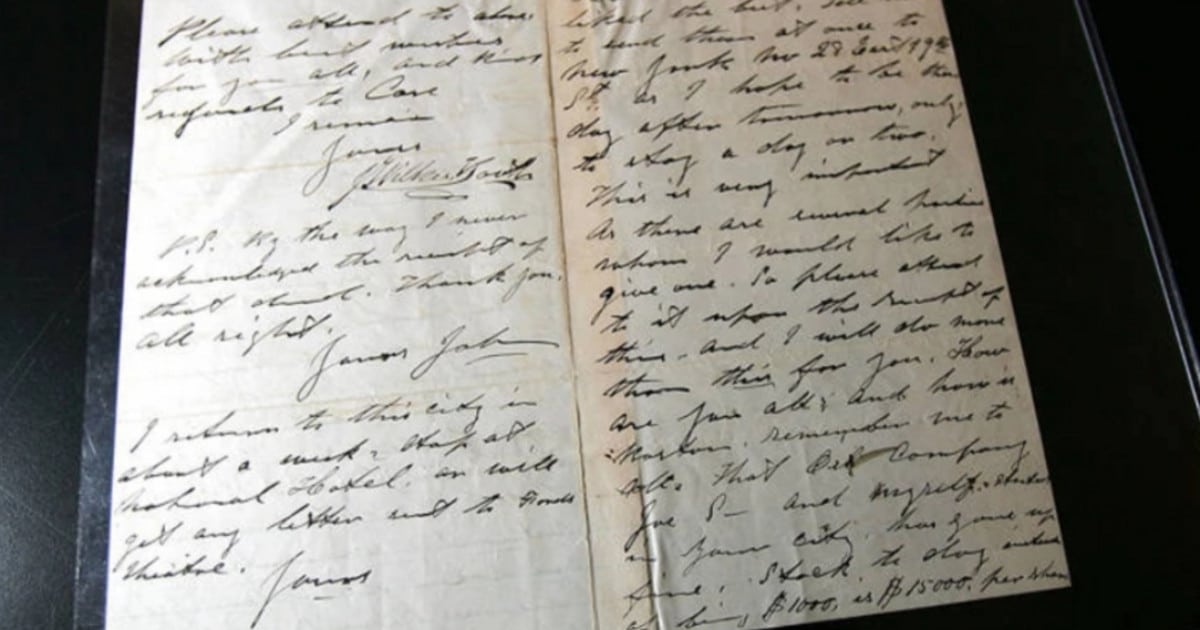 Please attend to above
With best wishes
for you all, and kind
regards to Cave
I remain
Yours
J Wilkes Booth
P.S. By the way I never
acknowledged the receipt of
that deed. Thank you.
all right.
Yours John
I return to this city in
about a week. stop at
National Hotel. or will
get any letter sent to Fords
theatre.
Yours
liked the best.
to send them at once to
New York No 28 East 19th
St. as I hope to be there
day after tomorrow, only
to stay a day or two.
This is very important
As there are several parties
whom I would like to
give one. So please attend
to it upon the receipt of
this. and I will do more
than this for you. How
are you all; and how is
remember me to
all. That Oil Company
Joe S— and myself. started
in your city. has gone up
fine; Stock. to day instead
of being $1000, is $15000. per share